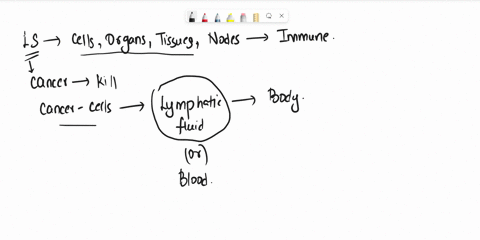 LS → Cells, Organs, Tissues, Nodes → Immune.
Cancer → kill
Cancer - cells → Lymphatic fluid → Body.
(or)
Blood.